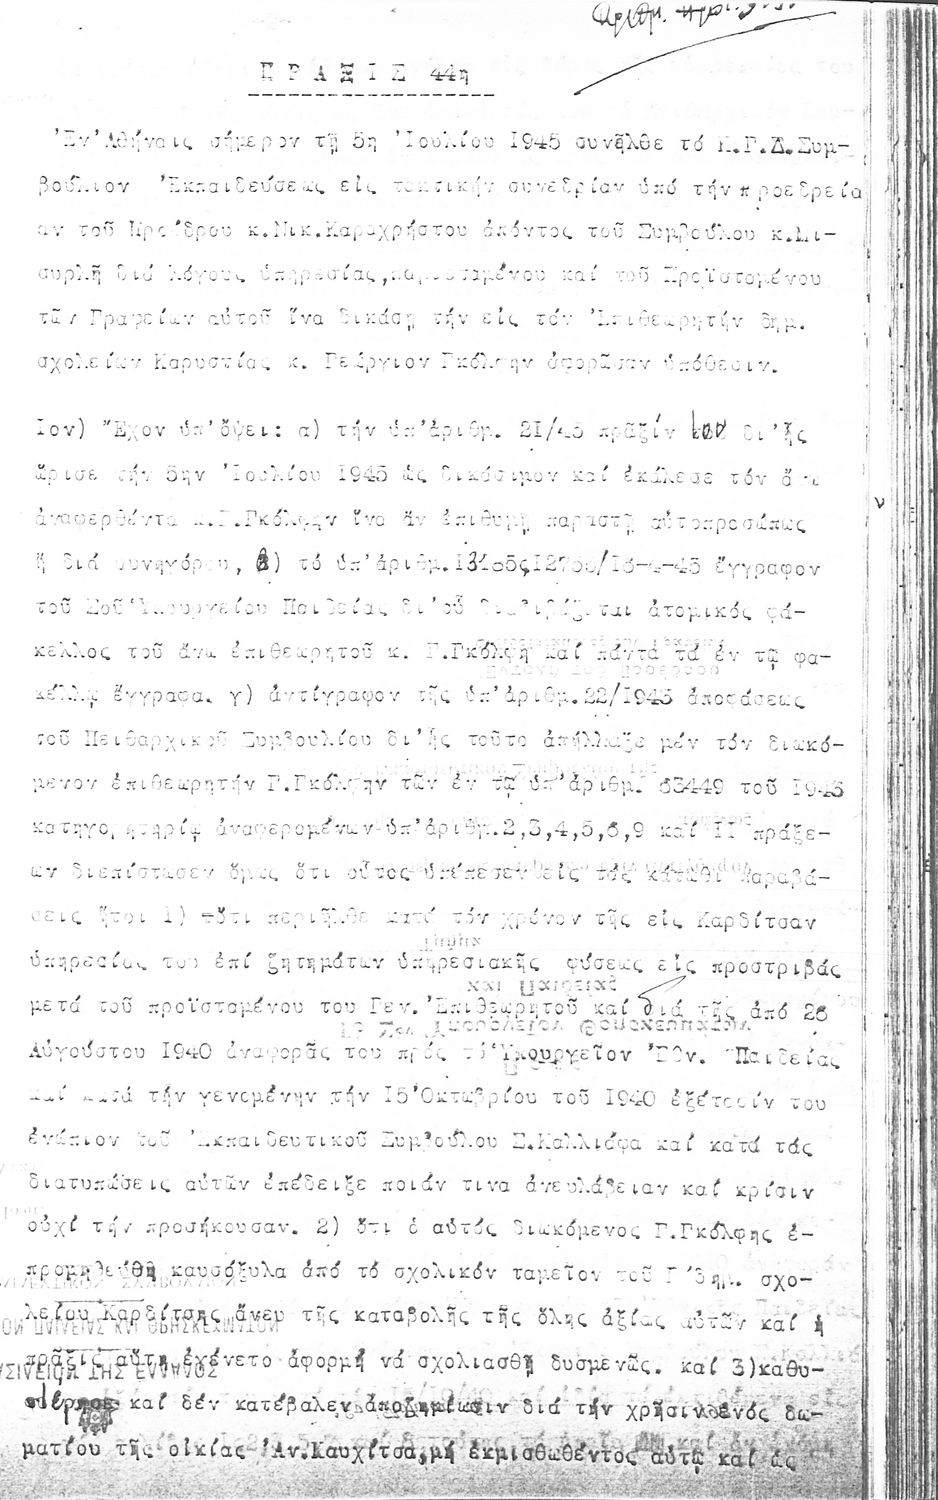 Αριθμ.
ΠΡΑΞΙΣ 44η
Ἐν Ἀθήναις σήμερον τῇ 5η Ἰουλίου 1945 συνῆλθε τό Κ.Γ.Δ.Συμ-
βούλιον Ἐκπαιδεύσεως εἰς τακτικήν συνεδρίαν ὑπό τήν προεδρεία
αν τοῦ Προέδρου κ.Νικ.Καραχρήστου ἀπόντος τοῦ Συμβούλου κ.Μι-
συρλῆ διά λόγους ὑπηρεσίας,παρισταμένου καί τοῦ Προϊσταμένου
τῶν Γραφείων αὐτοῦ ἵνα δικάσῃ τήν εἰς τόν Ἐπιθεωρητήν δημ.
σχολείων Καρυστίας κ. Γεώργιον Γκόλφην ἀφορῶσαν ὑπόθεσιν.
Ιον) Ἔχον ὑπ' ὄψει: α) τήν ὑπ' ἀριθμ. 21/45 πρᾶξίν του δι' ἧς
ὥρισε τήν 5ην Ἰουλίου 1945 ὡς δικάσιμον καί ἐκάλεσε τόν ἄνω
ἀναφερθέντα κ.Γ.Γκόλφην ἵνα ἄν ἐπιθυμῇ παραστῇ αὐτοπροσώπως
ἤ διά συνηγόρου, β) τό ὑπ' ἀριθμ. ἔγγραφον
τοῦ Σοῦ Ὑπουργείου Παιδείας δι' οὗ διαβιβάζεται ἀτομικός φά-
κελλος τοῦ ἄνω ἐπιθεωρητοῦ κ. Γ.Γκόλφη καί πάντα τά ἐν τῷ φα-
κέλλῳ ἔγγραφα. γ) ἀντίγραφον τῆς ὑπ' ἀριθμ.22/1943 ἀποφάσεως
τοῦ Πειθαρχικοῦ Συμβουλίου δι' ἧς τοῦτο ἀπήλλαξε μέν τόν διωκό-
μενον ἐπιθεωρητήν Γ.Γκόλφην τῶν ἐν τῷ ὑπ' ἀριθμ. 63449 τοῦ 1943
κατηγορητηρίῳ ἀναφερομένων ὑπ' ἀριθμ.2,3,4,5,6,9 καί ΙΙ πράξε-
ων διεπίστωσεν ὅμως ὅτι οὗτος ὑπέπεσεν εἰς τάς κάτωθι παραβά-
σεις ἤτοι 1) ὅτι περιῆλθε κατά τόν χρόνον τῆς εἰς Καρδίτσαν
ὑπηρεσίας του ἐπί ζητημάτων ὑπηρεσιακῆς φύσεως εἰς προστριβάς
μετά τοῦ προϊσταμένου του Γεν. Ἐπιθεωρητοῦ καί διά τῆς ἀπό 26
Αὐγούστου 1940 ἀναφορᾶς του πρός τό Ὑπουργεῖον Ἐθν. Παιδείας
καί κατά τήν γενομένην τήν 15 Ὀκτωβρίου τοῦ 1940 ἐξέτασίν του
ἐνώπιον τοῦ Ἐκπαιδευτικοῦ Συμβούλου Σ.Καλλιάφα καί κατά τάς
διατυπώσεις αὐτῶν ἐπέδειξε ποιάν τινα ἀνευλάβειαν καί κρίσιν
οὐχί τήν προσήκουσαν. 2) ὅτι ὁ αὐτός διωκόμενος Γ.Γκόλφης ἐ-
προμηθεύθη καυσόξυλα ἀπό τό σχολικόν ταμεῖον τοῦ Γ' δημ. σχο-
λείου Καρδίτσης ἄνευ τῆς καταβολῆς τῆς ὅλης ἀξίας αὐτῶν καί ἡ
πρᾶξις αὕτη ἐγένετο ἀφορμή νά σχολιασθῇ δυσμενῶς. καί 3)καθυ-
στέρησε καί δέν κατέβαλεν ἀποζημίωσιν διά τήν χρῆσιν ἑνός δω-
ματίου τῆς οἰκίας Ἀν.Καυχίτσα,μή ἐκμισθωθέντος αὐτῷ καί ὡς